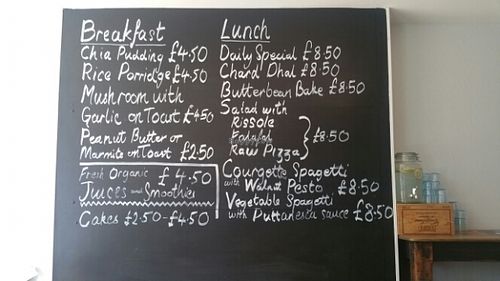 Breakfast
Chia Pudding £4.50
Rice Porridge £4.50
Mushroom with
Garlic on Toast £4.50
Peanut Butter or
Marmite on Toast £2.50
Fresh Organic £4.50
Juices and Smoothies
Cakes £2.50-£4.50
Lunch
Daily Special £8.50
Chard Dhal £8.50
Butterbean Bake £8.50
Salad with
Rissole
Falafal
Raw Pizza
£8.50
Courgette Spagetti
with Walnut Pesto £8.50
Vegetable Spagetti
with Puttanesta sauce £8.50